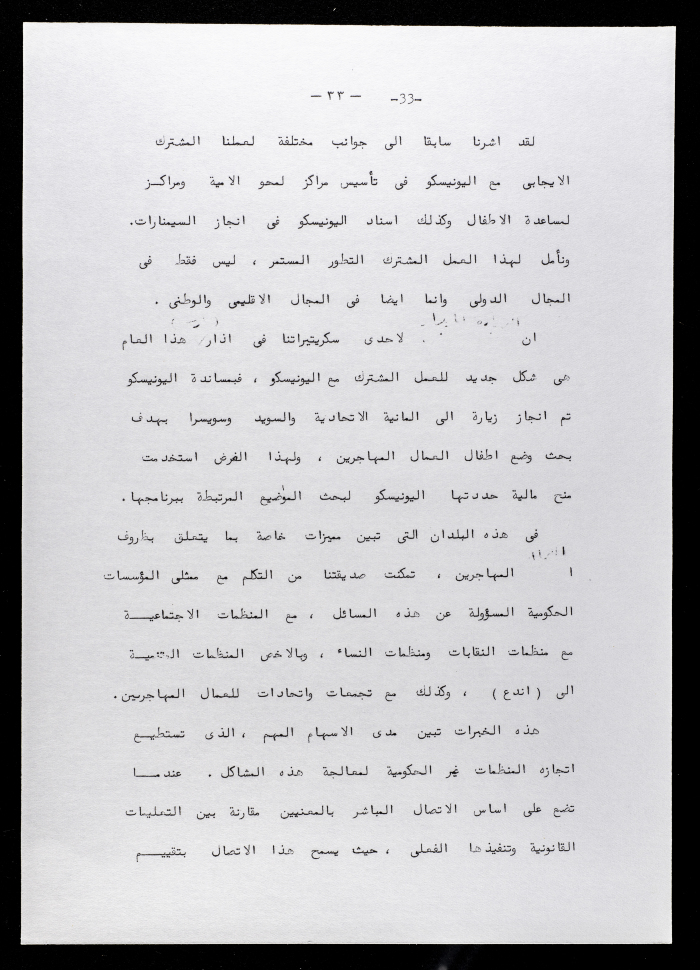 -33- — ٣٣ —
لقد اشرنا سابقا الى جوانب مختلفة لعملنا المشترك
الايجابى مع اليونيسكو فى تأسيس مراكز لمحو الامية ومراكـز
لمساعدة الاطفال وكذلك اسناد اليونيسكو فى انجاز السيمنارات.
ونأمل لهذا العمل المشترك التطور المستمر ، ليس فقط فى
المجال الدولى وانما ايضا فى المجال الاقليمى والوطنى .
ان لاحدى سكريتيراتنا فى اذار هذا العام
هى شكل جديد للعمل المشترك مع اليونيسكو ، فبمساندة اليونيسكو
تم انجاز زيارة الى المانية الاتحادية والسويد وسويسرا بهدف
بحث وضع اطفال العمال المهاجرين ، ولهذا الغرض استخدمت
منح مالية حددتها اليونيسكو لبحث المواضيع المرتبطة ببرنامجها.
فى هذه البلدان التى تبين مميزات خاصة بما يتعلق بظروف
المهاجرين ، تمكنت صديقتنا من التكلم مع ممثلى المؤسسات
الحكومية المسؤولة عن هذه المسائل ، مع المنظمات الاجتماعيـــة
مع منظمات النقابات ومنظمات النساء ، وبالاخص المنظمات المنتميـة
الى (اندع) ، وكذلك مع تجمعات واتحادات للعمال المهاجرين.
هذه الخبرات تبين مدى الاسهام المهم ، الذى تستطيـع
اتجازه المنظمات غير الحكومية لمعالجة هذه المشاكل . عندمــا
تضع على اساس الاتصال المباشر بالمعنيين مقارنة بين التعليمات
القانونية وتنفيذها الفعلى ، حيث يسمح هذا الاتصال بتقييــم